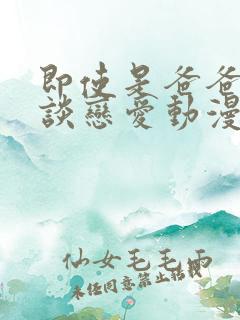 即使是爸爸
談戀愛動漫
仙女毛毛雨
未经同意禁止搭救